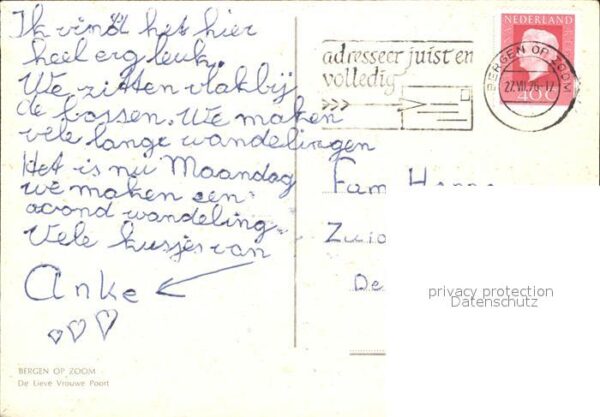 Ik vindt het hier
heel erg leuk.
We zitten vlakbij
de bossen. We maken
vele lange wandelingen
Het is nu Maandag
we maken een
avond wandeling.
Vele kusjes van
Anke
BERGEN OP ZOOM
De Lieve Vrouwe Poort
adresseer juist en
volledig
>>>
NEDERLAND
40c
BERGEN OP ZOOM
Fam
De
privacy protection
Datenschutz